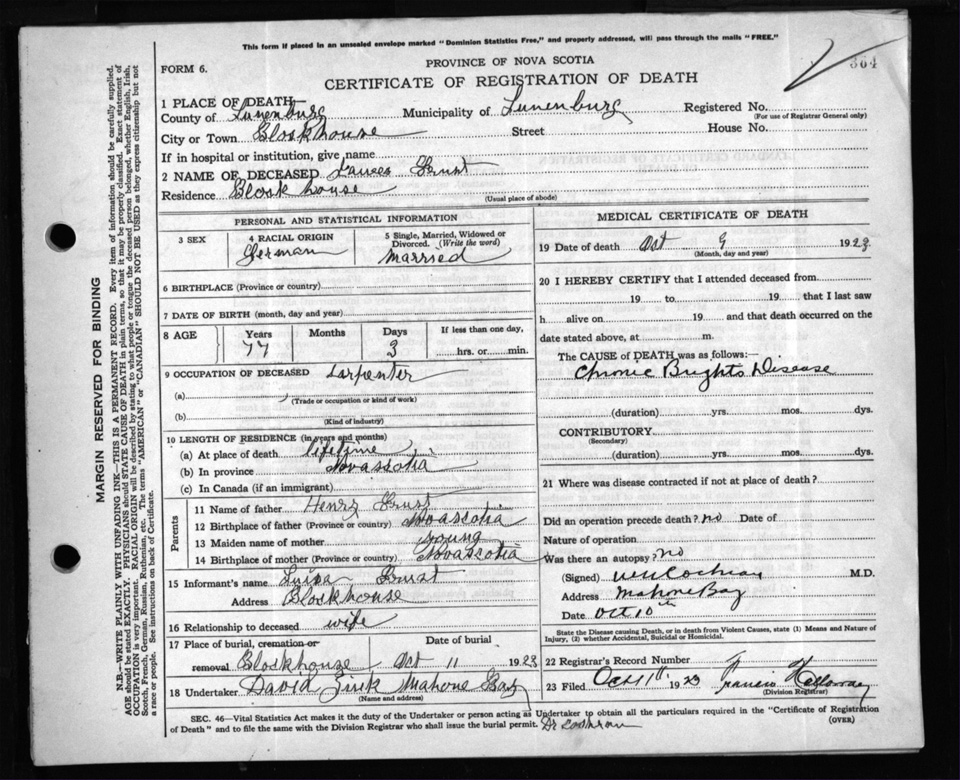 This form if placed in an unsealed envelope marked "Dominion Statistics Free," and properly addressed, will pass through the mails "FREE."
PROVINCE OF NOVA SCOTIA
FORM 6.
CERTIFICATE OF REGISTRATION OF DEATH
364
1 PLACE OF DEATH
County of Lunenburg Municipality of Lunenburg Registered No.
(For use of Registrar General only)
City or Town Blockhouse Street House No.
If in hospital or institution, give name
2 NAME OF DECEASED
Residence Block house
(Usual place of abode)
PERSONAL AND STATISTICAL INFORMATION
3 SEX
4 RACIAL ORIGIN
German
5 Single, Married, Widowed or Divorced. (Write the word)
Married
6 BIRTHPLACE (Province or country)
7 DATE OF BIRTH (month, day and year)
8 AGE Years Months Days If less than one day,
77 3 hrs. or min.
9 OCCUPATION OF DECEASED Carpenter
(a)
(Trade or occupation or kind of work)
(b)
(Kind of industry)
10 LENGTH OF RESIDENCE (in years and months)
(a) At place of death lifetime
(b) In province Novascotia
(c) In Canada (if an immigrant)
Parents
11 Name of father Henry
12 Birthplace of father (Province or country) Novascotia
13 Maiden name of mother young
14 Birthplace of mother (Province or country) Novascotia
15 Informant's name
Address Blockhouse
16 Relationship to deceased wife
17 Place of burial, cremation or removal Blockhouse
Date of burial Oct 11 1923
18 Undertaker David Zink Mahone Bay
(Name and address)
MEDICAL CERTIFICATE OF DEATH
19 Date of death Oct 9 1923
(Month, day and year)
20 I HEREBY CERTIFY that I attended deceased from
19 to 19 that I last saw
h alive on 19 and that death occurred on the
date stated above, at m.
The CAUSE of DEATH was as follows:
Chronic Brights Disease
(duration) yrs. mos. dys.
CONTRIBUTORY
(Secondary)
(duration) yrs. mos. dys.
21 Where was disease contracted if not at place of death?
Did an operation precede death? no Date of
Nature of operation
Was there an autopsy? no
(Signed) Cochran M.D.
Address Mahone Bay
Date Oct 10th
State the Disease causing Death, or in death from Violent Causes, state (1) Means and Nature of Injury, (2) whether Accidental, Suicidal or Homicidal.
22 Registrar's Record Number
23 Filed Oct 11 1923 Francis
(Division Registrar)
SEC. 46—Vital Statistics Act makes it the duty of the Undertaker or person acting as Undertaker to obtain all the particulars required in the "Certificate of Registration
of Death" and to file the same with the Division Registrar who shall issue the burial permit. Dr Cochran
(OVER)
MARGIN RESERVED FOR BINDING
N.B.—WRITE PLAINLY WITH UNFADING INK—THIS IS A PERMANENT RECORD. Every item of information should be carefully supplied.
AGE should be stated EXACTLY. PHYSICIANS should STATE CAUSE OF DEATH in plain terms, so that it may be properly classified. Exact statement of
OCCUPATION is very important. RACIAL ORIGIN will be described by stating to what people or tongue the deceased person belonged, whether English, Irish,
Scotch, French, German, Russian, Ruthenian, etc. The terms "AMERICAN" or "CANADIAN" SHOULD NOT BE USED as they express citizenship but not
a race or people. See instructions on back of Certificate.